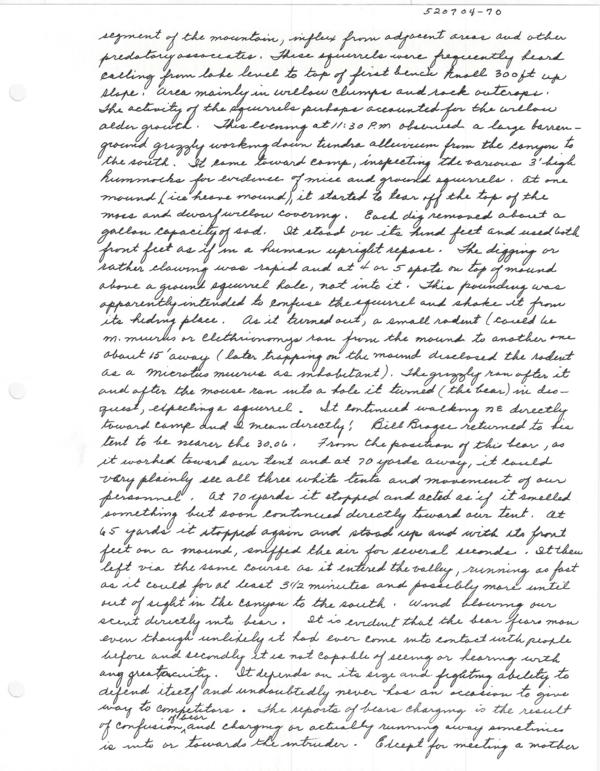 520704-70
segment of the mountain, influx from adjacent areas and other
predatory associates. These squirrels were frequently heard
calling from lake level to top of first bench knoll 300 ft up
slope. Area mainly in willow clumps and rock outcrops.
The activity of the squirrels perhaps accounted for the willow
alder growth. This evening at 11:30 P.M. observed a large barren-
ground grizzly working down tundra alluvium from the canyon to
the south. It came toward camp, inspecting the various 3' high
hummocks for evidence of mice and ground squirrels. At one
mound (ice heave mound), it started to tear off the top of the
moss and dwarf willow covering. Each dig removed about a
gallon capacity of sod. It stood on its hind feet and used both
front feet as if in a human upright repose. The digging or
rather clawing was rapid and at 4 or 5 spots on top of mound
above a ground squirrel hole, not into it. This pounding was
apparently intended to confuse the squirrel and shake it from
its hiding place. As it turned out, a small rodent (could be
M. muirus or Clethrionomys ran from the mound to another one
about 15' away (later trapping on the mound disclosed the rodent
as a Microtus muirus as inhabitant). The grizzly ran after it
and after the mouse ran into a hole it turned (the bear) in dis-
quest, expecting a squirrel. It continued walking NE directly
toward camp and I mean directly! Bill Brogse returned to his
tent to be nearer the 30.06. From the position of this bear, as
it worked toward our tent and at 70 yards away, it could
very plainly see all three white tents and movement of our
personnel. At 70 yards it stopped and acted as if it smelled
something but soon continued directly toward our tent. At
65 yards it stopped again and stood up and with its front
feet on a mound, sniffed the air for several seconds. It then
left via the same course as it entered the valley, running as fast
as it could for at least 3 1/2 minutes and possibly more until
out of sight in the canyon to the south. Wind blowing our
scent directly into bear. It is evident that the bear fears man
even though unlikely it had ever come into contact with people
before and secondly it is not capable of seeing or hearing with
any great acuity. It depends on its size and fighting ability to
defend itself and undoubtedly never has an occasion to give
way to competitors. The reports of bears charging is the result
of confusion of bear and charging or actually running away sometimes
is into or towards the intruder. Except for meeting a mother